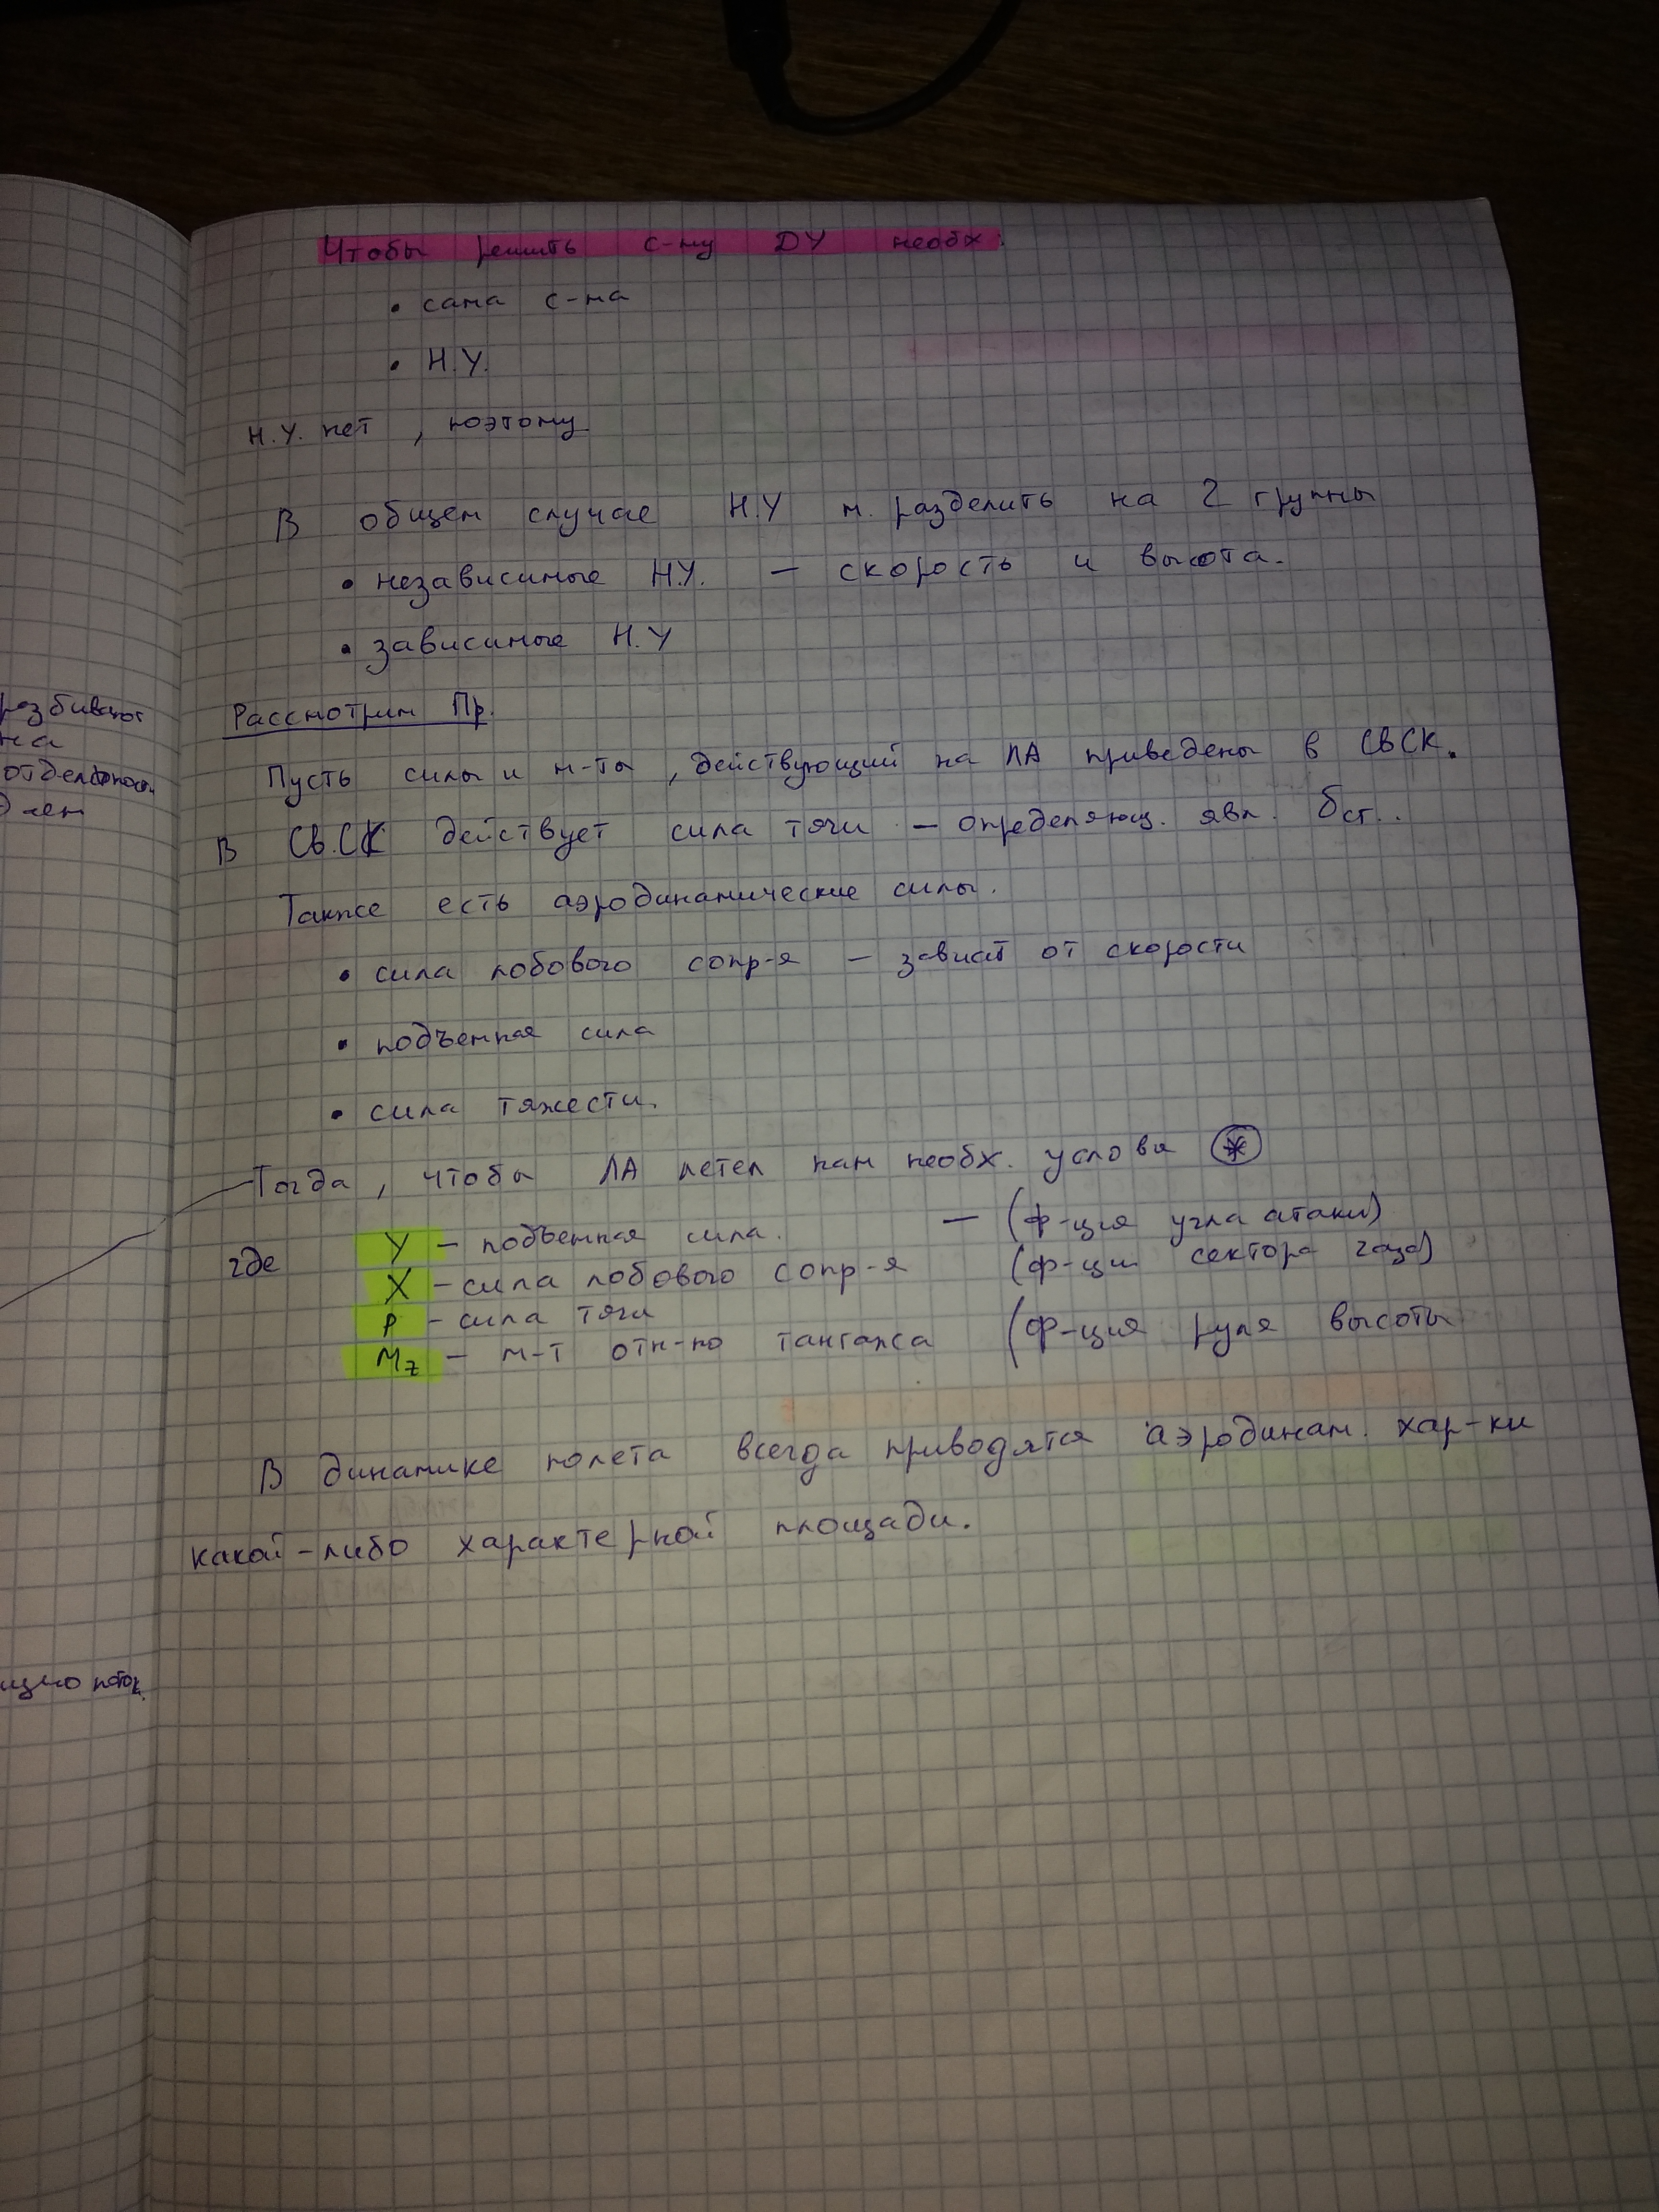 Чтобы решить с-му ДУ необх:
• сама с-ма
• Н.У.
Н.У. нет, поэтому
В общем случае Н.У м. разделить на 2 группы
• независимые Н.У. — скорость и высота.
• зависимые Н.У
Рассмотрим Пр.
Пусть силы и м-ты, действующий на ЛА приведены в СВСК.
В Св.СК действует сила тяги — определяющ. явл. δст..
Также есть аэродинамические силы.
• сила лобового сопр-я — зависит от скорости
• подъемная сила
• сила тяжести.
Тогда, чтобы ЛА летел нам необх. условия *
где Y — подъемная сила. — (ф-ция угла атаки)
X — сила лобового сопр-я (ф-ции сектора газа)
P — сила тяги
Mz — м-т отн-но тангажа (ф-ция руля высоты
В динамике полета всегда приводятся аэродинам. хар-ки
какой-либо характерной площади.
разбивают
на
отдел